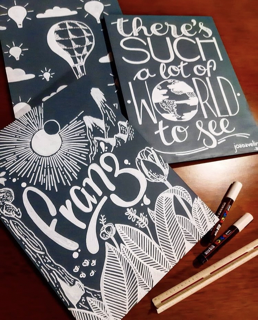 there's
SUCH
a lot of
WORLD
to see
franz